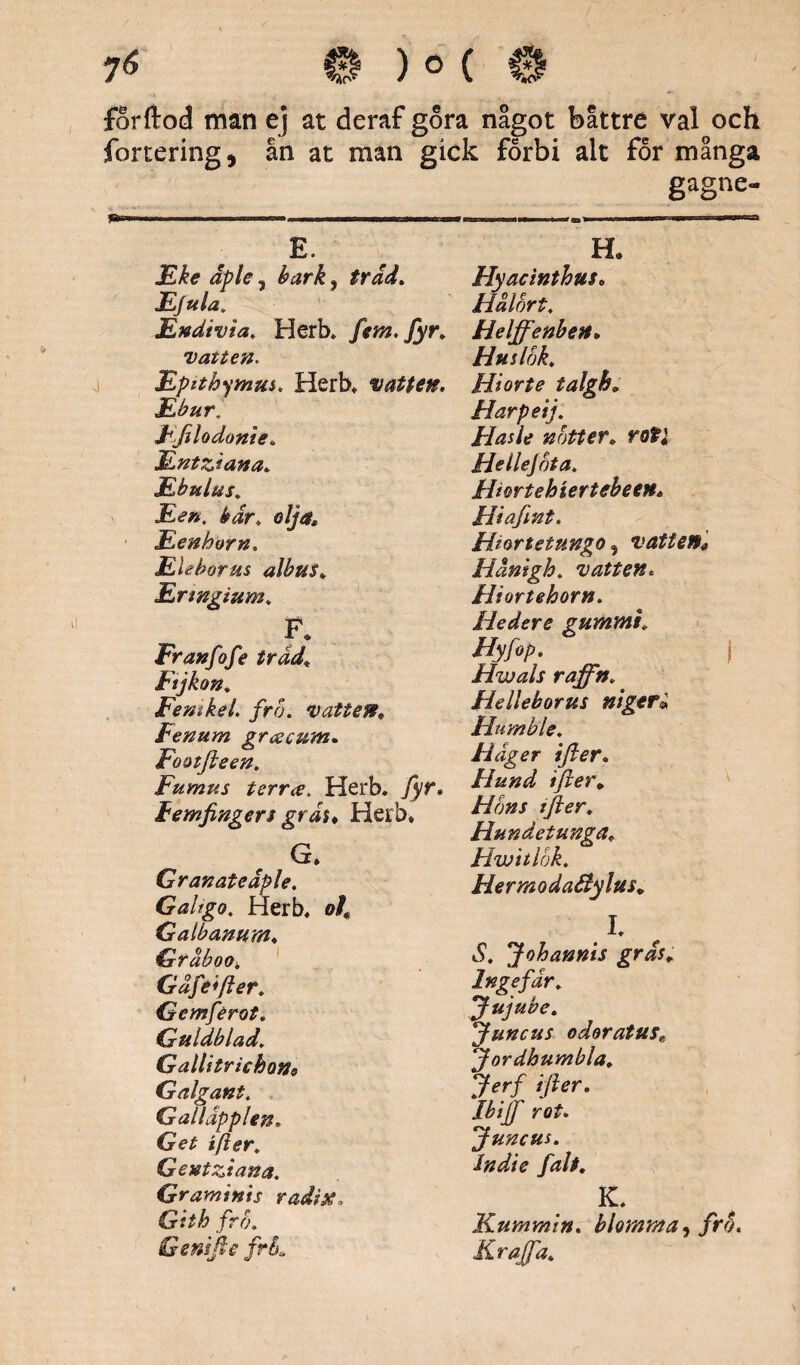 76 ) o (
förstod man ej at deraf göra något båttre val och
sortering, ån at man gick förbi alt för många
gagne-
E.
Eke åple, bark, tråd.
Esula.
Endivia. Herb. sem. syr.
vatten.
Epithymus. Herb. vatten.
Ebur.
Esilodonie.
Entziana.
Ebulus.
Een. bår. olja.
Eenhorn.
Eleborus albus.
Eringium.
F.
Fransose tråd.
Fijkon.
Femikel. frö. vatten.
Fenum græcum.
Footsteen.
Fumus terræ. Herb. syr.
Femfingers grås. Herb.
G.
Granateåple.
Galigo. Herb. ol.
Galbanum.
Gråboo.
Gåseister.
Gemserot.
Guldblad.
Gallitrichon.
Galgant.
Gallåpplen.
Get ister.
Gentziana.
Graminis radix.
Gith frö.
Geniste frö.
H.
Hyacinthus.
Hålört.
Helffenben.
Huslök.
Hiorte talgh.
Harpeij.
Hasle nötter. rot.
Hellejöta.
Hiortehiertebeen.
Hiasint.
Hiortetungo, vatten.
Hånigh. vatten.
Hiortehorn.
Hedere gummi.
Hysop.
Hwals raffn.
Helleborus niger.
Humble.
Håger ister.
Hund ister.
Höns ister.
Hundetunga.
Hwitlök.
Hermodactylus.
I.
S. Johannis grås.
Ingefår.
Jujube.
Juncus odoratus.
Jordhumbla.
Jerf ister.
Ibiff rot.
Juncus.
Indie salt.
K.
Kummin. blomma, frö.
Krassa.